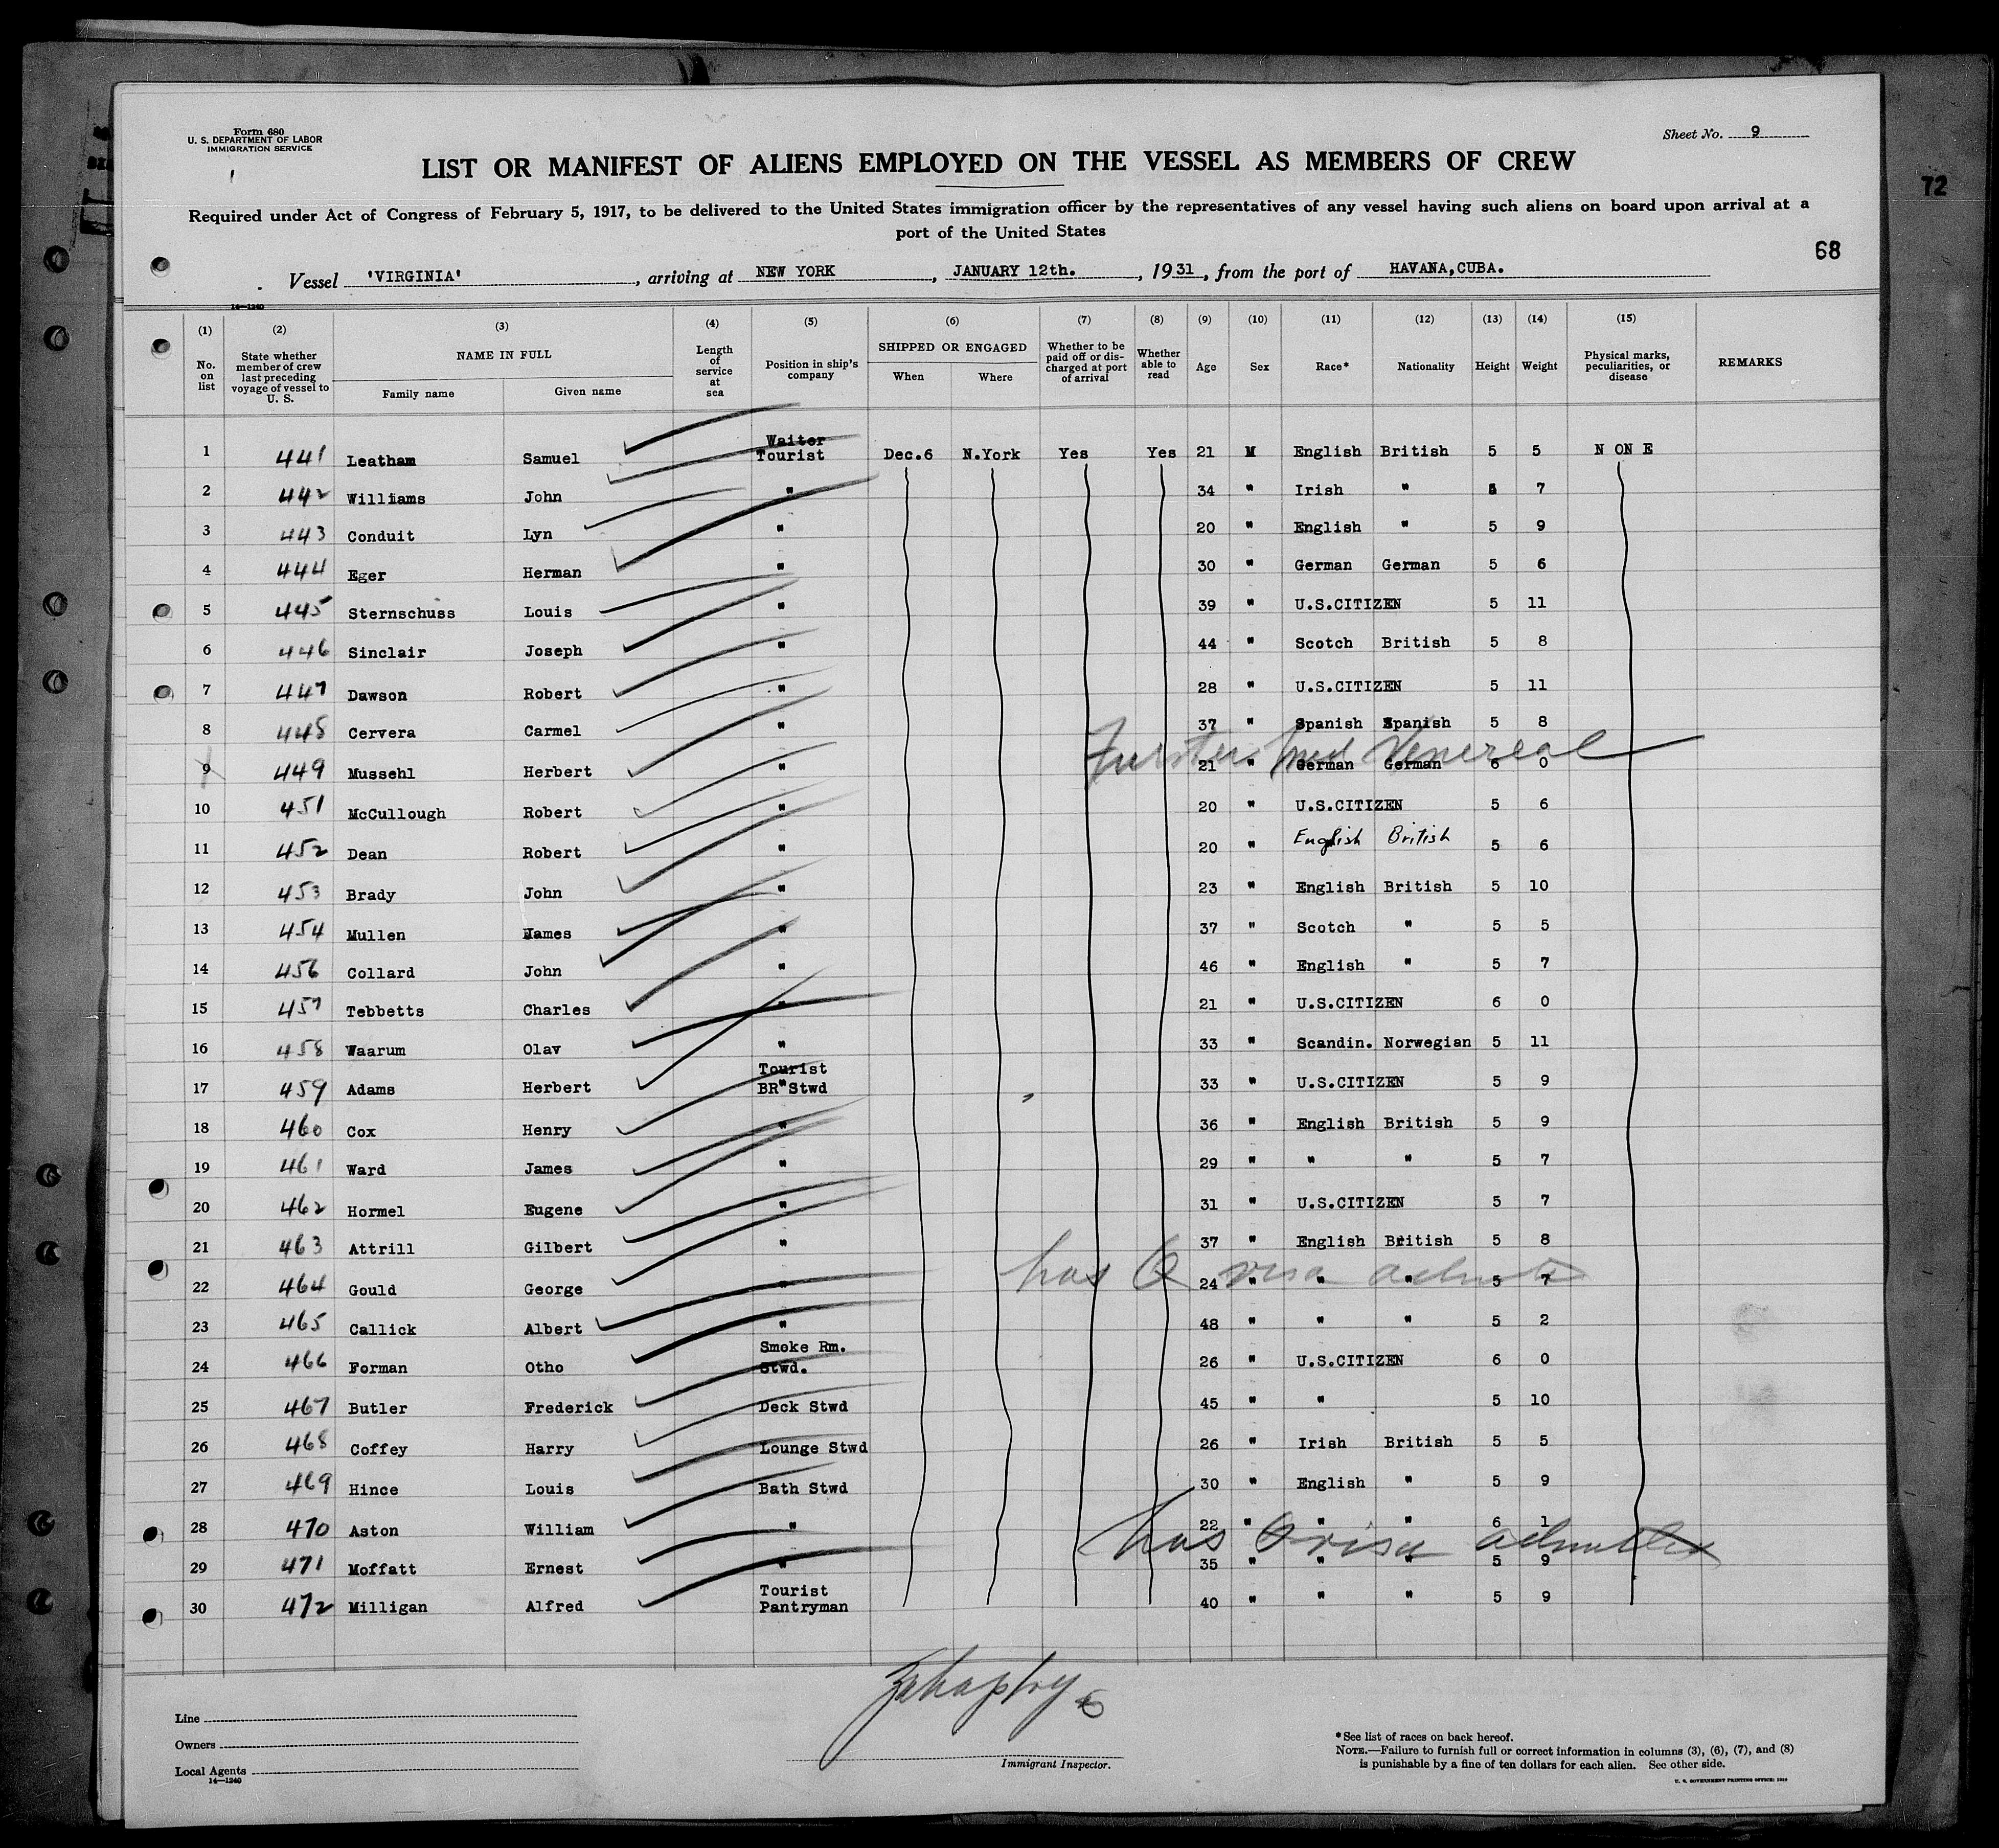 Form 680
U. S. DEPARTMENT OF LABOR
IMMIGRATION SERVICE
Sheet No. 9
LIST OR MANIFEST OF ALIENS EMPLOYED ON THE VESSEL AS MEMBERS OF CREW
72
Required under Act of Congress of February 5, 1917, to be delivered to the United States immigration officer by the representatives of any vessel having such aliens on board upon arrival at a
port of the United States
68
Vessel 'VIRGINIA', arriving at NEW YORK, JANUARY 12th., 1931, from the port of HAVANA,CUBA.
14—1240
(1) (2) (3) (4) (5) (6) (7) (8) (9) (10) (11) (12) (13) (14) (15)
No. on list
State whether member of crew last preceding voyage of vessel to U. S.
NAME IN FULL
Family name Given name
Length of service at sea
Position in ship's company
SHIPPED OR ENGAGED
When Where
Whether to be paid off or discharged at port of arrival
Whether able to read
Age Sex Race* Nationality Height Weight
Physical marks, peculiarities, or disease
REMARKS
1 441 Leatham Samuel Waiter Tourist Dec.6 N.York Yes Yes 21 M English British 5 5 N ON E
2 442 Williams John " 34 " Irish " 5 7
3 443 Conduit Lyn " 20 " English " 5 9
4 444 Eger Herman " 30 " German German 5 6
5 445 Sternschuss Louis " 39 " U.S.CITIZEN 5 11
6 446 Sinclair Joseph " 44 " Scotch British 5 8
7 447 Dawson Robert " 28 " U.S.CITIZEN 5 11
8 448 Cervera Carmel " 37 " Spanish Spanish 5 8
Venereal
9 449 Mussehl Herbert " 21 " German German 6 0
10 451 McCullough Robert " 20 " U.S.CITIZEN 5 6
11 452 Dean Robert " 20 " English British 5 6
12 453 Brady John " 23 " English British 5 10
13 454 Mullen James " 37 " Scotch " 5 5
14 456 Collard John " 46 " English " 5 7
15 457 Tebbetts Charles " 21 " U.S.CITIZEN 6 0
16 458 Waarum Olav " 33 " Scandin. Norwegian 5 11
17 459 Adams Herbert Tourist BR"Stwd 33 " U.S.CITIZEN 5 9
18 460 Cox Henry " 36 " English British 5 9
19 461 Ward James " 29 " " " 5 7
20 462 Hormel Eugene " 31 " U.S.CITIZEN 5 7
21 463 Attrill Gilbert " 37 " English British 5 8
has Q visa
22 464 Gould George " 24 " " " 5 7
23 465 Callick Albert " 48 " " " 5 2
24 466 Forman Otho Smoke Rm. Stwd. 26 " U.S.CITIZEN 6 0
25 467 Butler Frederick Deck Stwd 45 " " 5 10
26 468 Coffey Harry Lounge Stwd 26 " Irish British 5 5
27 469 Hince Louis Bath Stwd 30 " English " 5 9
28 470 Aston William " 22 " " " 6 1
has visa
29 471 Moffatt Ernest " 35 " " " 5 9
30 472 Milligan Alfred Tourist Pantryman 40 " " " 5 9
Line
Owners
Local Agents
14—1240
Immigrant Inspector.
*See list of races on back hereof.
NOTE.—Failure to furnish full or correct information in columns (3), (6), (7), and (8)
is punishable by a fine of ten dollars for each alien. See other side.